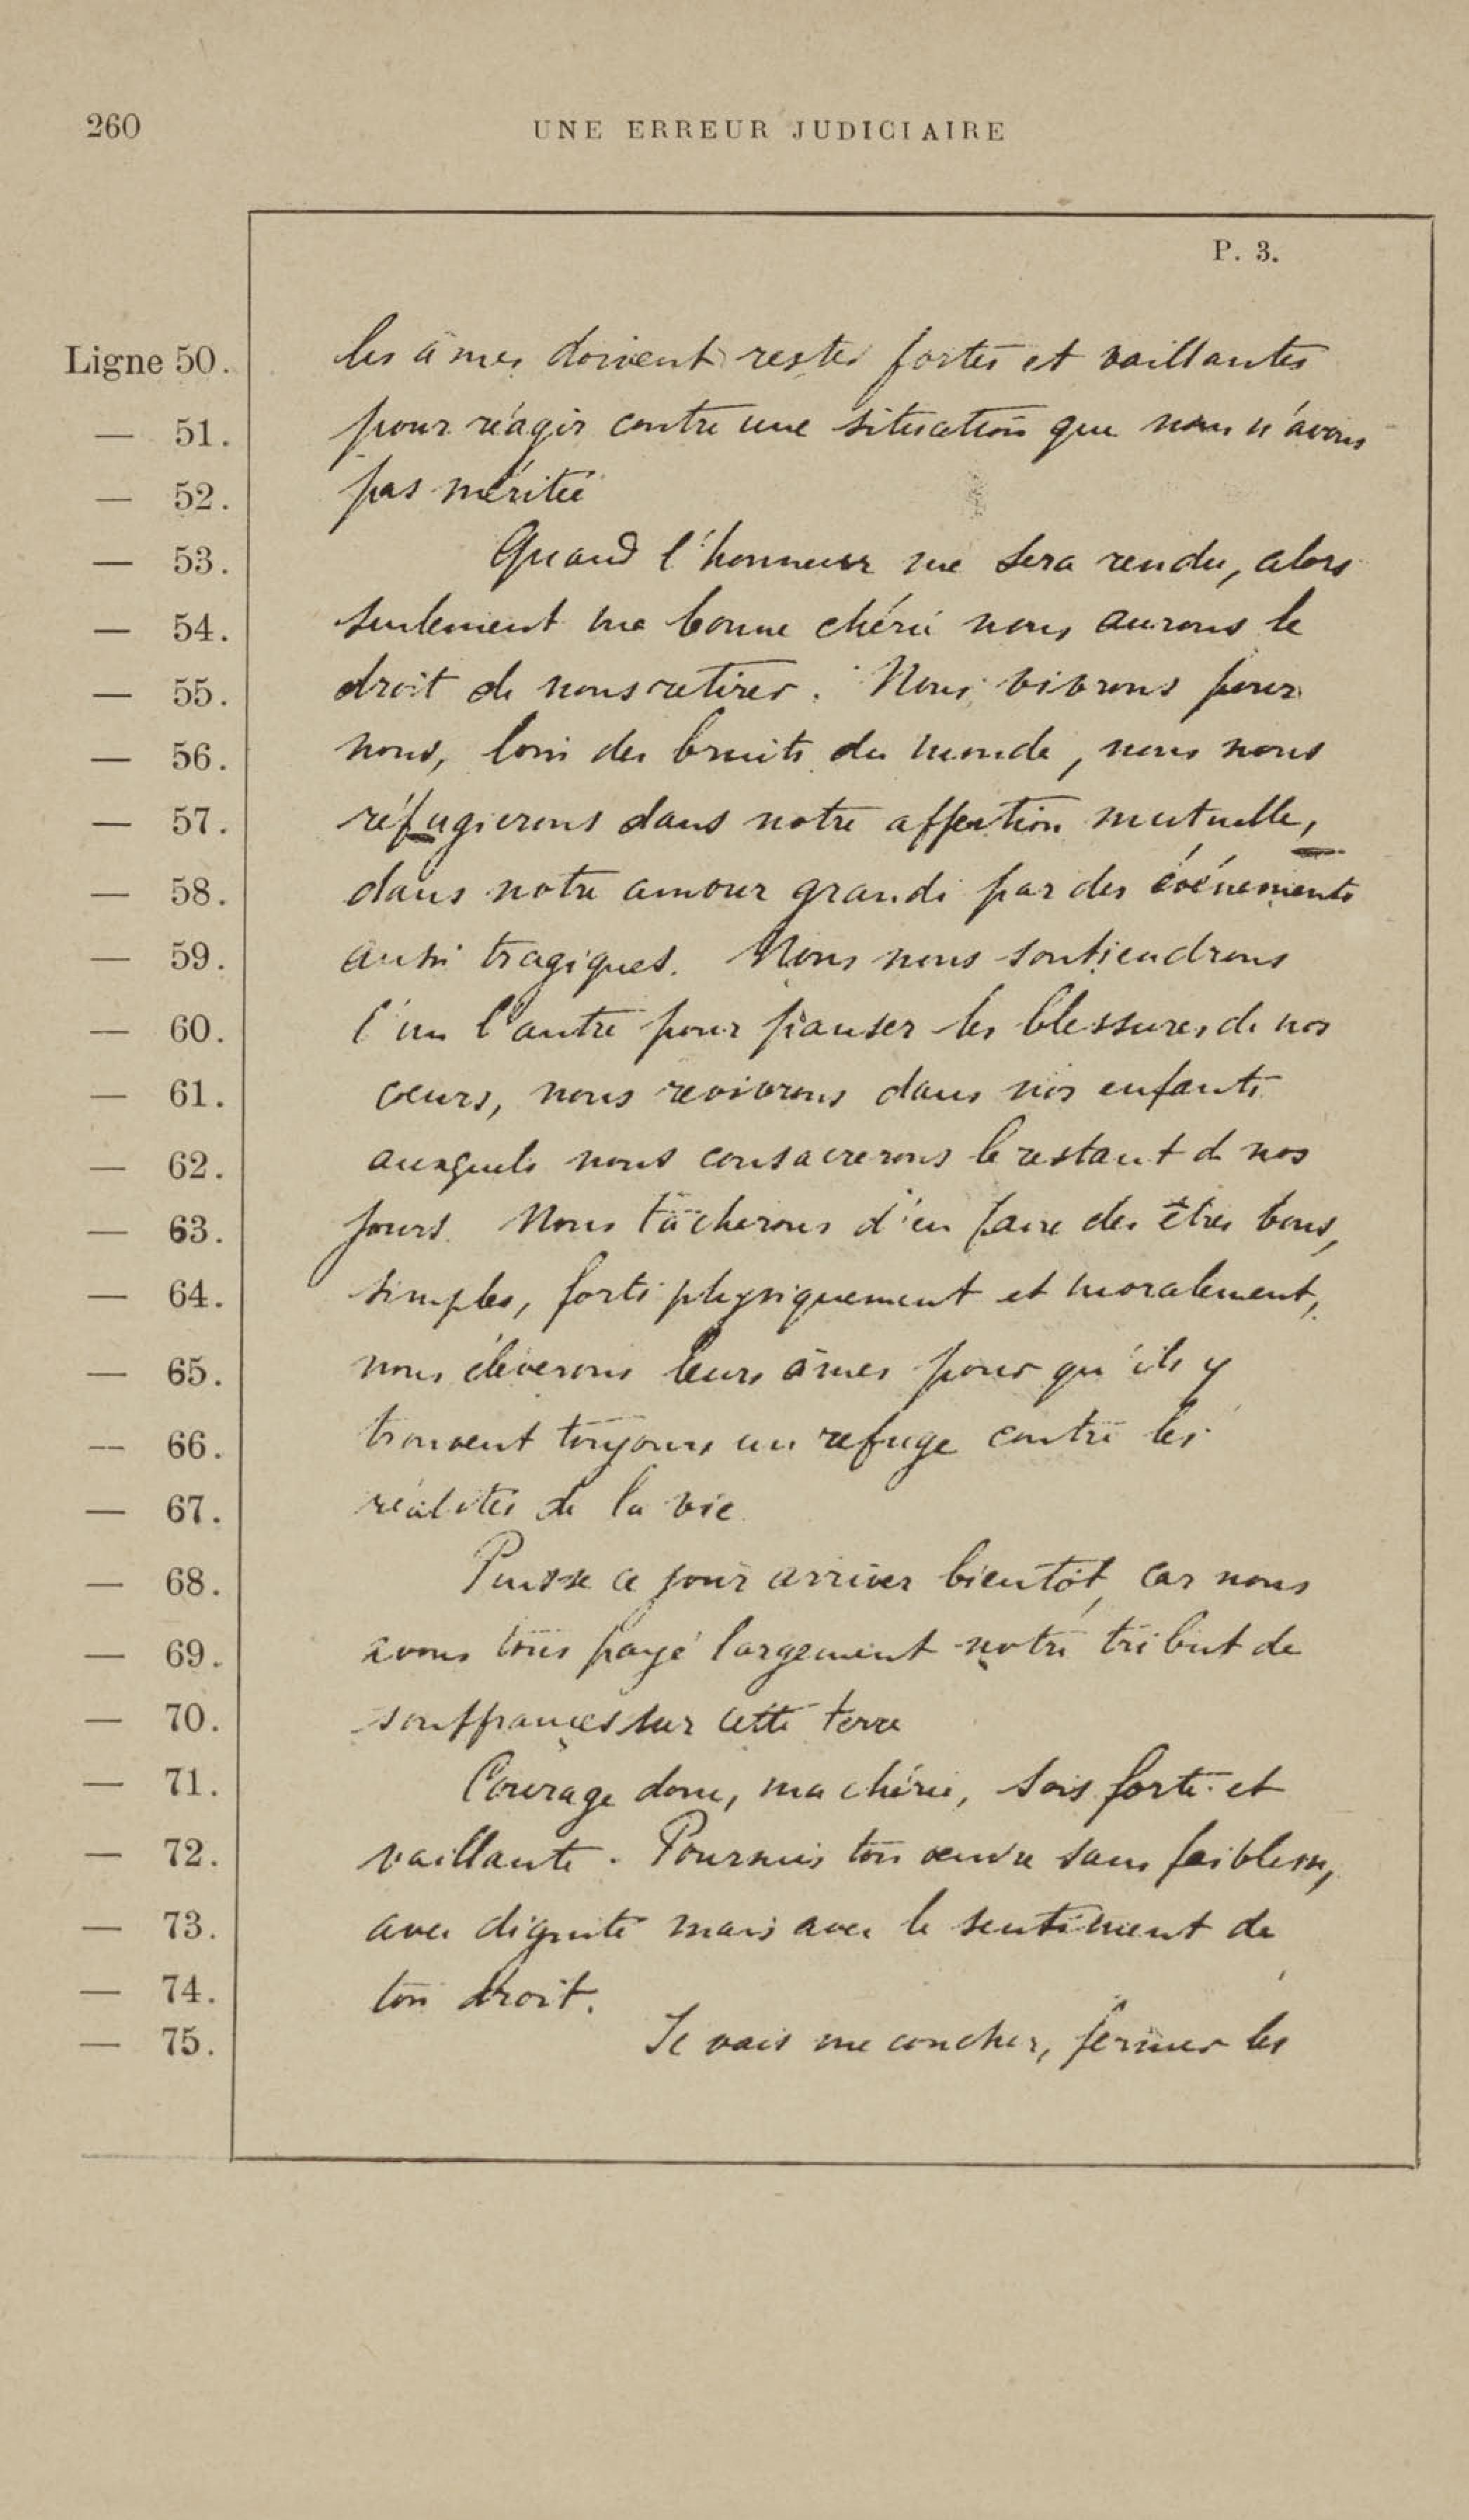 260 UNE ERREUR JUDICIAIRE
P. 3.
Ligne 50. les âmes doivent rester fortes et vaillantes
— 51. pour réagir contre une situation que nous n'avons
— 52. pas méritée
— 53. Quand l'honneur me sera rendu, alors
— 54. seulement ma bonne chérie nous aurons le
— 55. droit de nous retirer. Nous vivrons pour
— 56. nous, loin des bruits du monde, nous nous
— 57. réfugierons dans notre affection mutuelle,
— 58. dans notre amour grandi par des événements
— 59. aussi tragiques. Nous nous soutiendrons
— 60. l'un l'autre pour panser les blessures de nos
— 61. cœurs, nous revivrons dans nos enfants
— 62. auxquels nous consacrerons le restant de nos
— 63. jours. Nous tâcherons d'en faire des êtres bons,
— 64. simples, forts physiquement et moralement,
— 65. nous élèverons leurs âmes pour qu'ils y
— 66. trouvent toujours un refuge contre les
— 67. réalités de la vie
— 68. Puisse ce jour arriver bientôt, car nous
— 69. avons tous payé largement notre tribut de
— 70. souffrances sur cette terre
— 71. Courage donc, ma chérie, sois forte et
— 72. vaillante. Poursuis ton œuvre sans faiblesse,
— 73. avec dignité mais avec le sentiment de
— 74. ton droit.
— 75. Je vais me coucher, fermer les